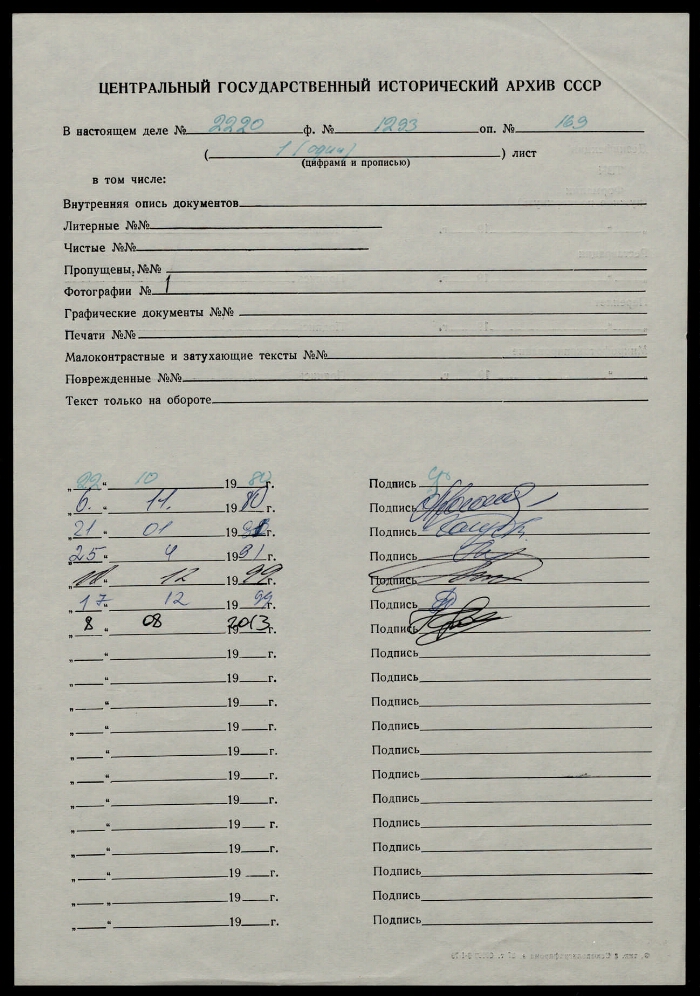 ЦЕНТРАЛЬНЫЙ ГОСУДАРСТВЕННЫЙ ИСТОРИЧЕСКИЙ АРХИВ СССР
В настоящем деле № 2220 ф. № 1293 оп. № 169
( 1 (один) ) лист
(цифрами и прописью)
в том числе:
Внутренняя опись документов
Литерные №№
Чистые №№
Пропущены, №№
Фотографии № 1
Графические документы №№
Печати №№
Малоконтрастные и затухающие тексты №№
Поврежденные №№
Текст только на обороте
„22“ 10 19 г. Подпись
„6.“ 11. 1980 г. Подпись
„21“ 01 19 г. Подпись
„25“ 4 1991 г. Подпись
12 1999 г. Подпись
„17“ 12 1999 г. Подпись
„8“ 08 2013 г. Подпись
„ “ 19 г. Подпись
„ “ 19 г. Подпись
„ “ 19 г. Подпись
„ “ 19 г. Подпись
„ “ 19 г. Подпись
„ “ 19 г. Подпись
„ “ 19 г. Подпись
„ “ 19 г. Подпись
„ “ 19 г. Подпись
„ “ 19 г. Подпись
„ “ 19 г. Подпись
„ “ 19 г. Подпись